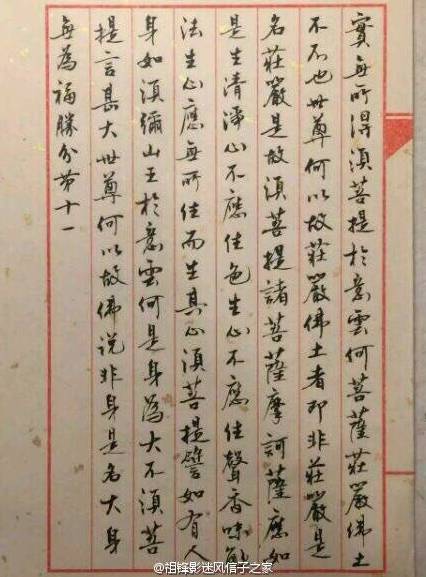 實無所得須菩提於意雲何菩薩莊嚴佛土
不不也世尊何以故莊嚴佛土者即非莊嚴是
名莊嚴是故須菩提諸菩薩摩訶薩應如
是生清淨心不應住色生心不應住聲香味觸
法生心應無所住而生其心須菩提譬如有人
身如須彌山王於意雲何是身為大不須菩
提言甚大世尊何以故佛说非身是名大身
無為福勝分第十一
@祖锋影迷风信子之家